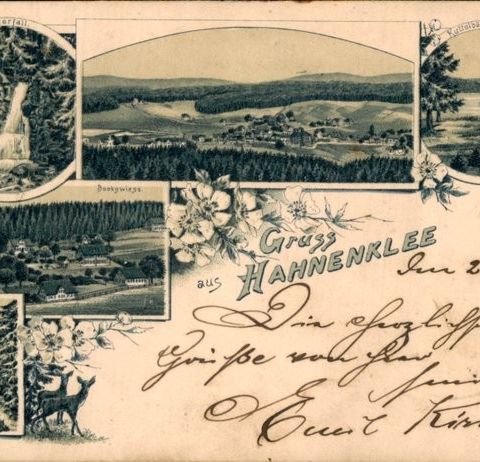 erfall.
Kuttelbä
Bockswiese
Gruss
aus HAHNENKLEE
Den 2
Die herzlichs
Grüße von hier
Emil Kir